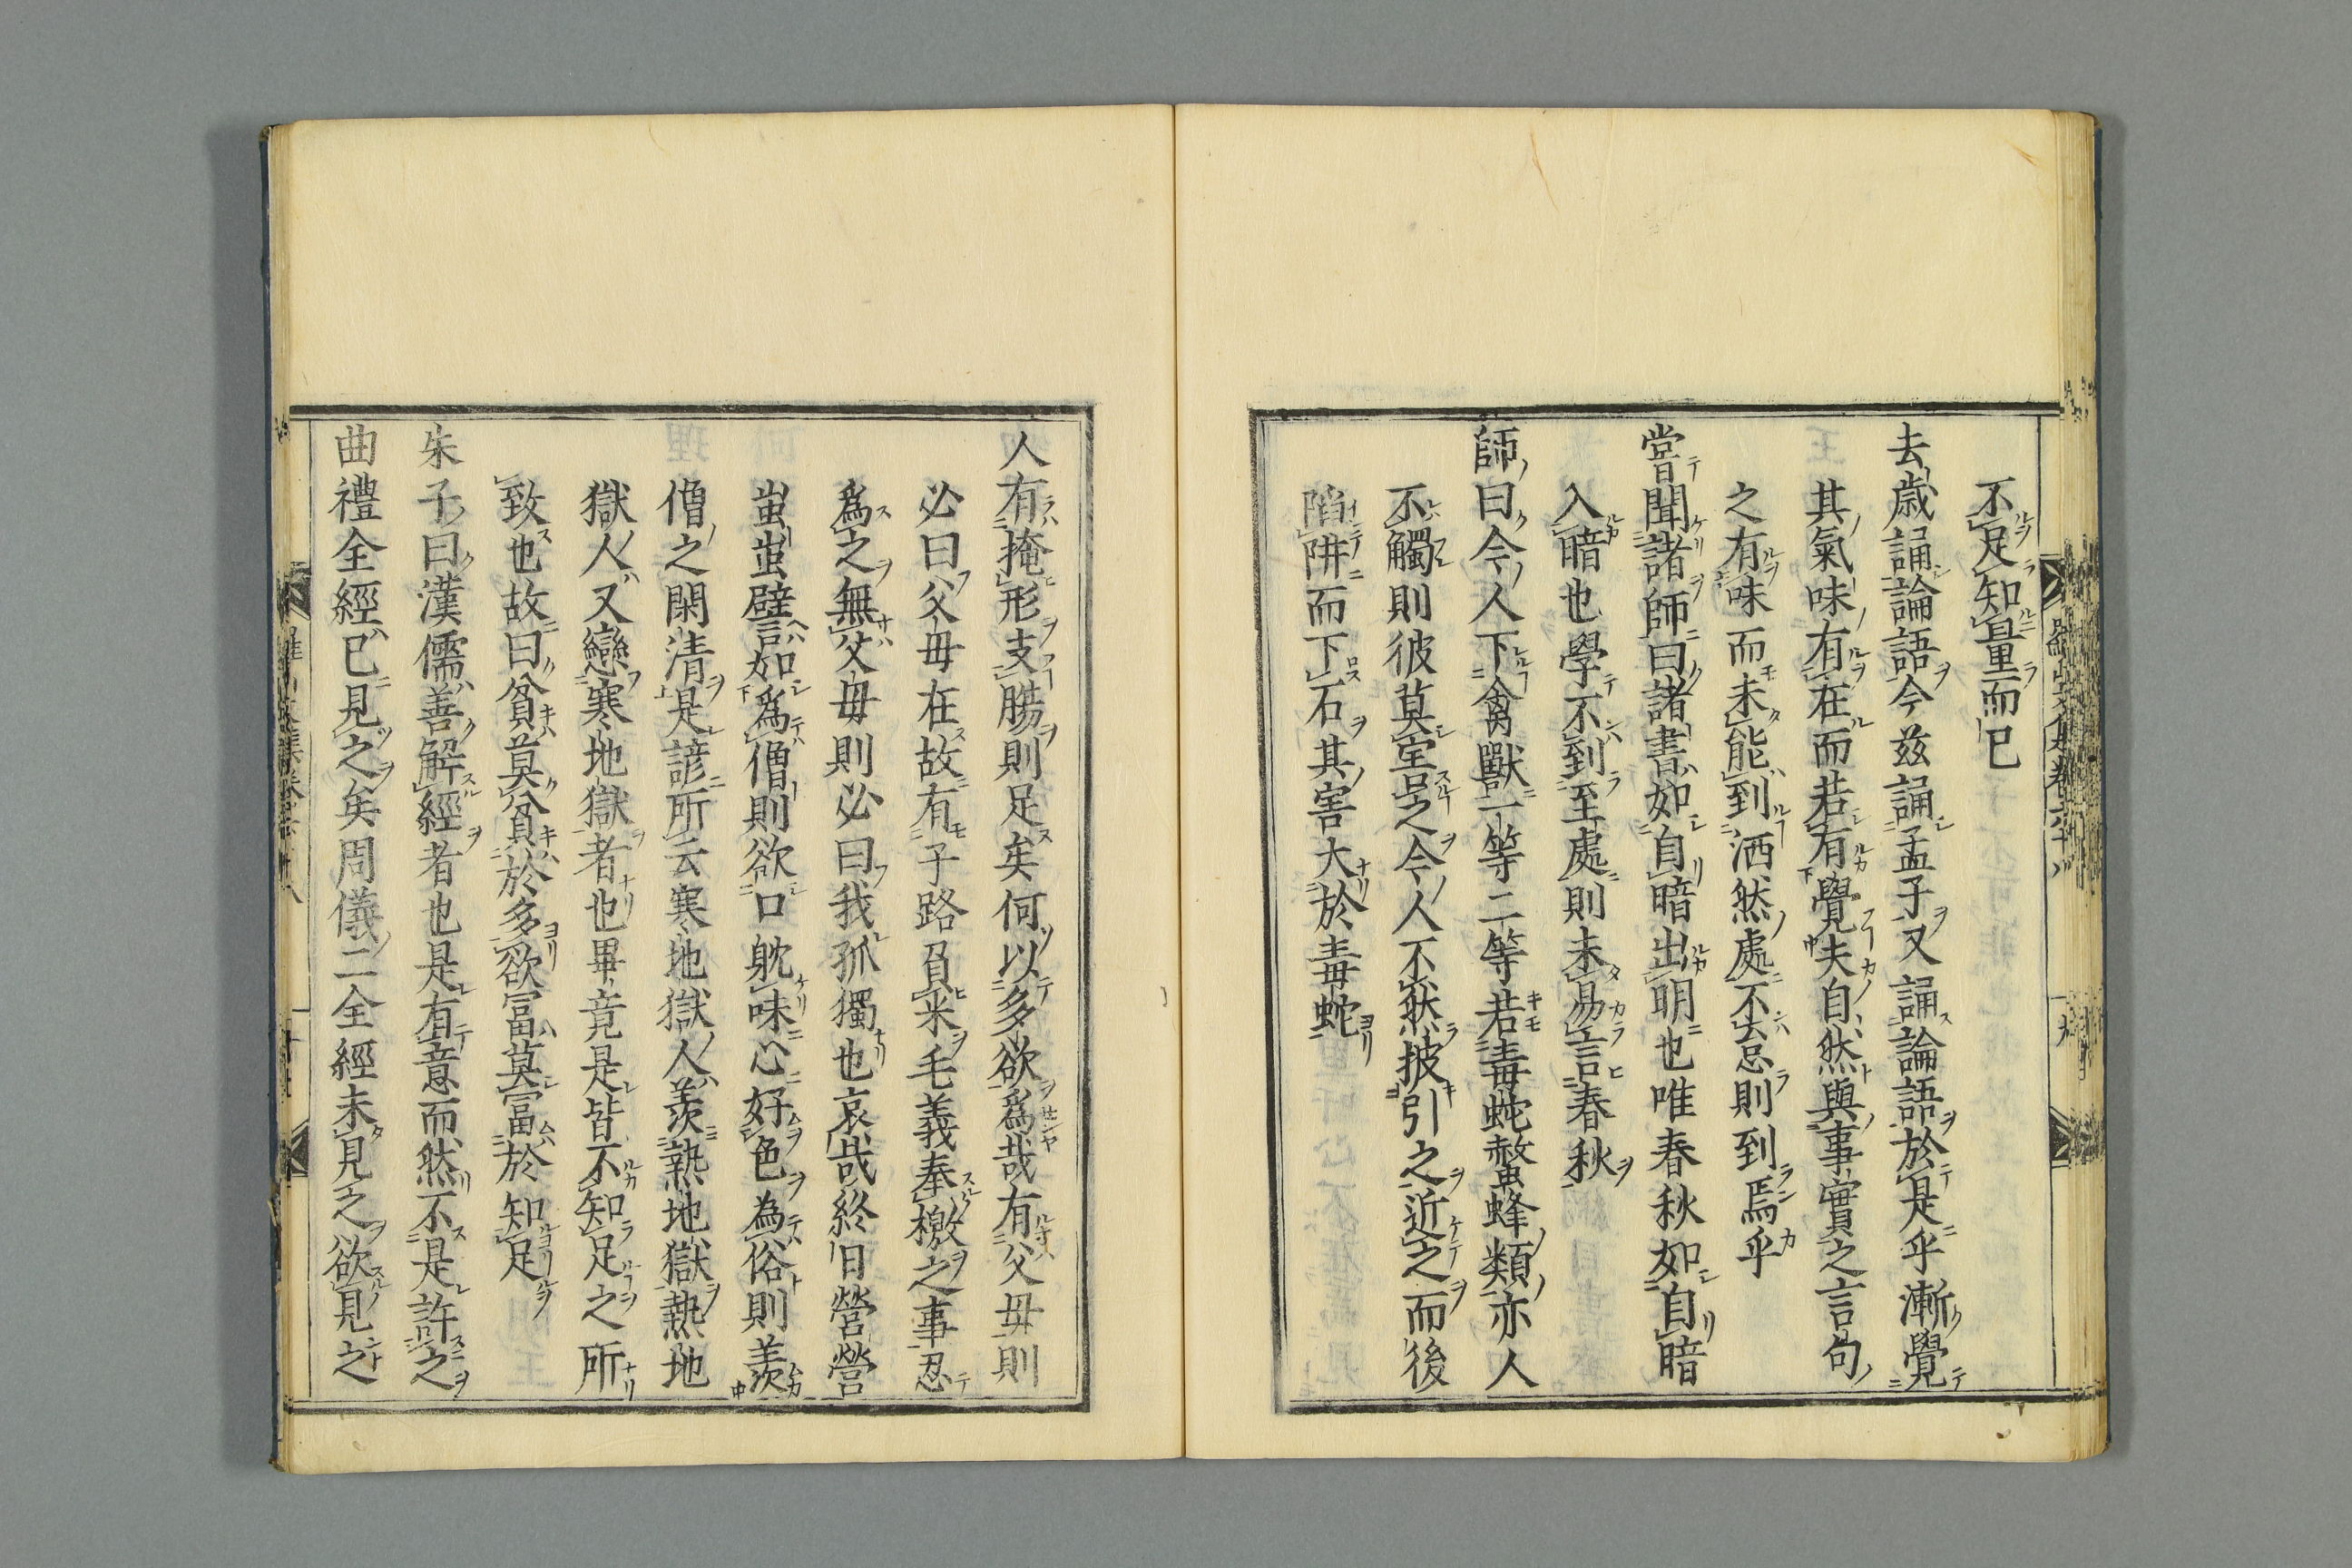 不足知量而已
去歳誦論語今茲誦孟子又誦論語於是乎漸覺
其氣味有在而若有覺夫自然與事實之言句
之有味而未能到洒然處不怠則到焉乎
嘗聞諸師曰諸書如自暗出明也唯春秋如自暗
入暗也學不到至處則未易言春秋
師曰今人下禽獸一等二等若毒蛇螫蜂類亦人
不觸則彼莫室呂今人不然披引之近之而後
陷阱而下石其害大於毒蛇
人有掩形支腸則足矣何以多欲爲哉有父毋則
必曰父毋在故有子路負米毛義奉檄之事忍
爲之無父毋則必曰我孤獨也哀哉終日營營
蚩蚩譬如爲僧則欲口躭味心好色為俗則羨
僧之閑清是諺所云寒地獄人羨熱地獄熱地
獄人又戀寒地獄者也畢竟是皆不知足之所
致也故曰貧莫貧於多欲冨莫冨於知足
朱子曰漢儒善解經者也是有意而然不是許之
曲禮全經已見之矣周儀二全經未見之欲見之